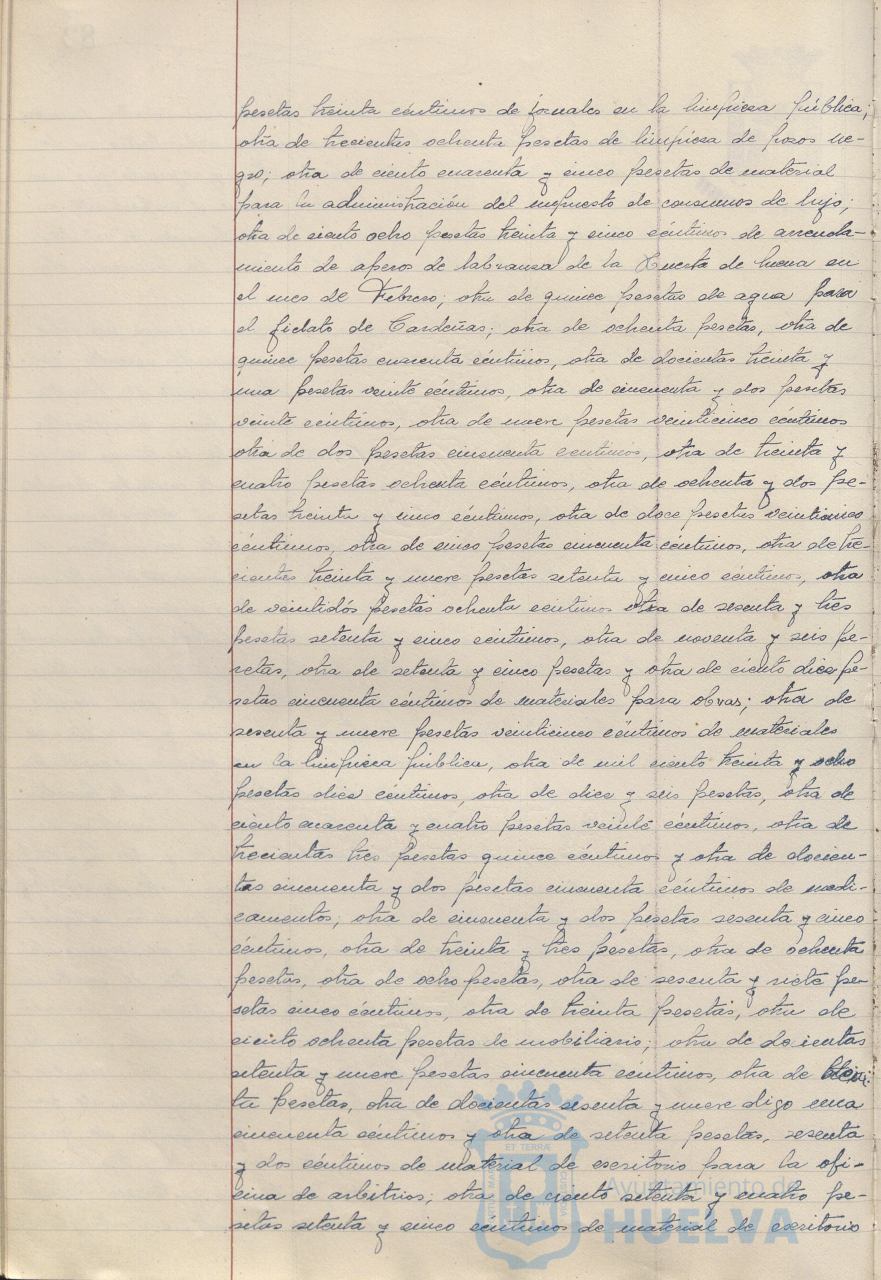 pesetas treinta céntimos de jornales en la limpieza pública;
otra de trecientas ochenta pesetas de limpiesa de pozos ne-
gro; otra de ciento cuarenta y cinco pesetas de material
para la administración del impuesto de consumos de lujo;
otra de ciento ocho pesetas treinta y cinco céntimos de arrenda-
miento de aperos de labranza de la Huerta de Mena en
el mes de Febrero; otra de quince pesetas de agua para
el fielato de Cardeñas; otra de ochenta pesetas, otra de
quince pesetas cuarenta céntimos, otra de docientas treinta y
una pesetas veinte céntimos, otra de cincuenta y dos pesetas
veinte céntimos, otra de nueve pesetas veinticinco céntimos
otra de dos pesetas cincuenta centimos, otra de treinta y
cuatro pesetas ochenta céntimos, otra de ochenta y dos pe-
setas treinta y cinco céntimos, otra de doce pesetas veinticinco
céntimos, otra de cinco pesetas cincuenta céntimos, otra de tre-
cientas treinta y nueve pesetas setenta y cinco céntimos, otra
de veintidós pesetas ochenta centimos otra de sesenta y tres
pesetas setenta y cinco céntimos, otra de noventa y seis pe-
setas, otra de setenta y cinco pesetas y otra de ciento diez pe-
setas cincuenta céntimos de materiales para obras; otra de
sesenta y nueve pesetas veinticinco céntimos de materiales
en la limpieza pública, otra de mil ciento treinta y ocho
pesetas diez céntimos, otra de diez y seis pesetas, otra de
ciento cuarenta y cuatro pesetas veinte céntimos, otra de
trecientas tres pesetas quince céntimos y otra de docien-
tas cincuenta y dos pesetas cincuenta céntimos de medi-
camentos; otra de cincuenta y dos pesetas sesenta y cinco
céntimos, otra de treinta y tres pesetas, otra de ochenta
pesetas, otra de ocho pesetas, otra de sesenta y siete pe-
setas cinco céntimos, otra de treinta pesetas, otra de
ciento ochenta pesetas de mobiliario; otra de docientas
setenta y nueve pesetas cincuenta céntimos, otra de
ta pesetas, otra de docientas sesenta y nueve digo una
cincuenta céntimos y otra de setenta pesetas, sesenta
y dos céntimos de material de escritorio para la ofi-
cina de arbitrios; otra de ciento setenta y cuatro pe-
setas setenta y cinco centimos de material de escritorio
Ayuntamiento de
HUELVA